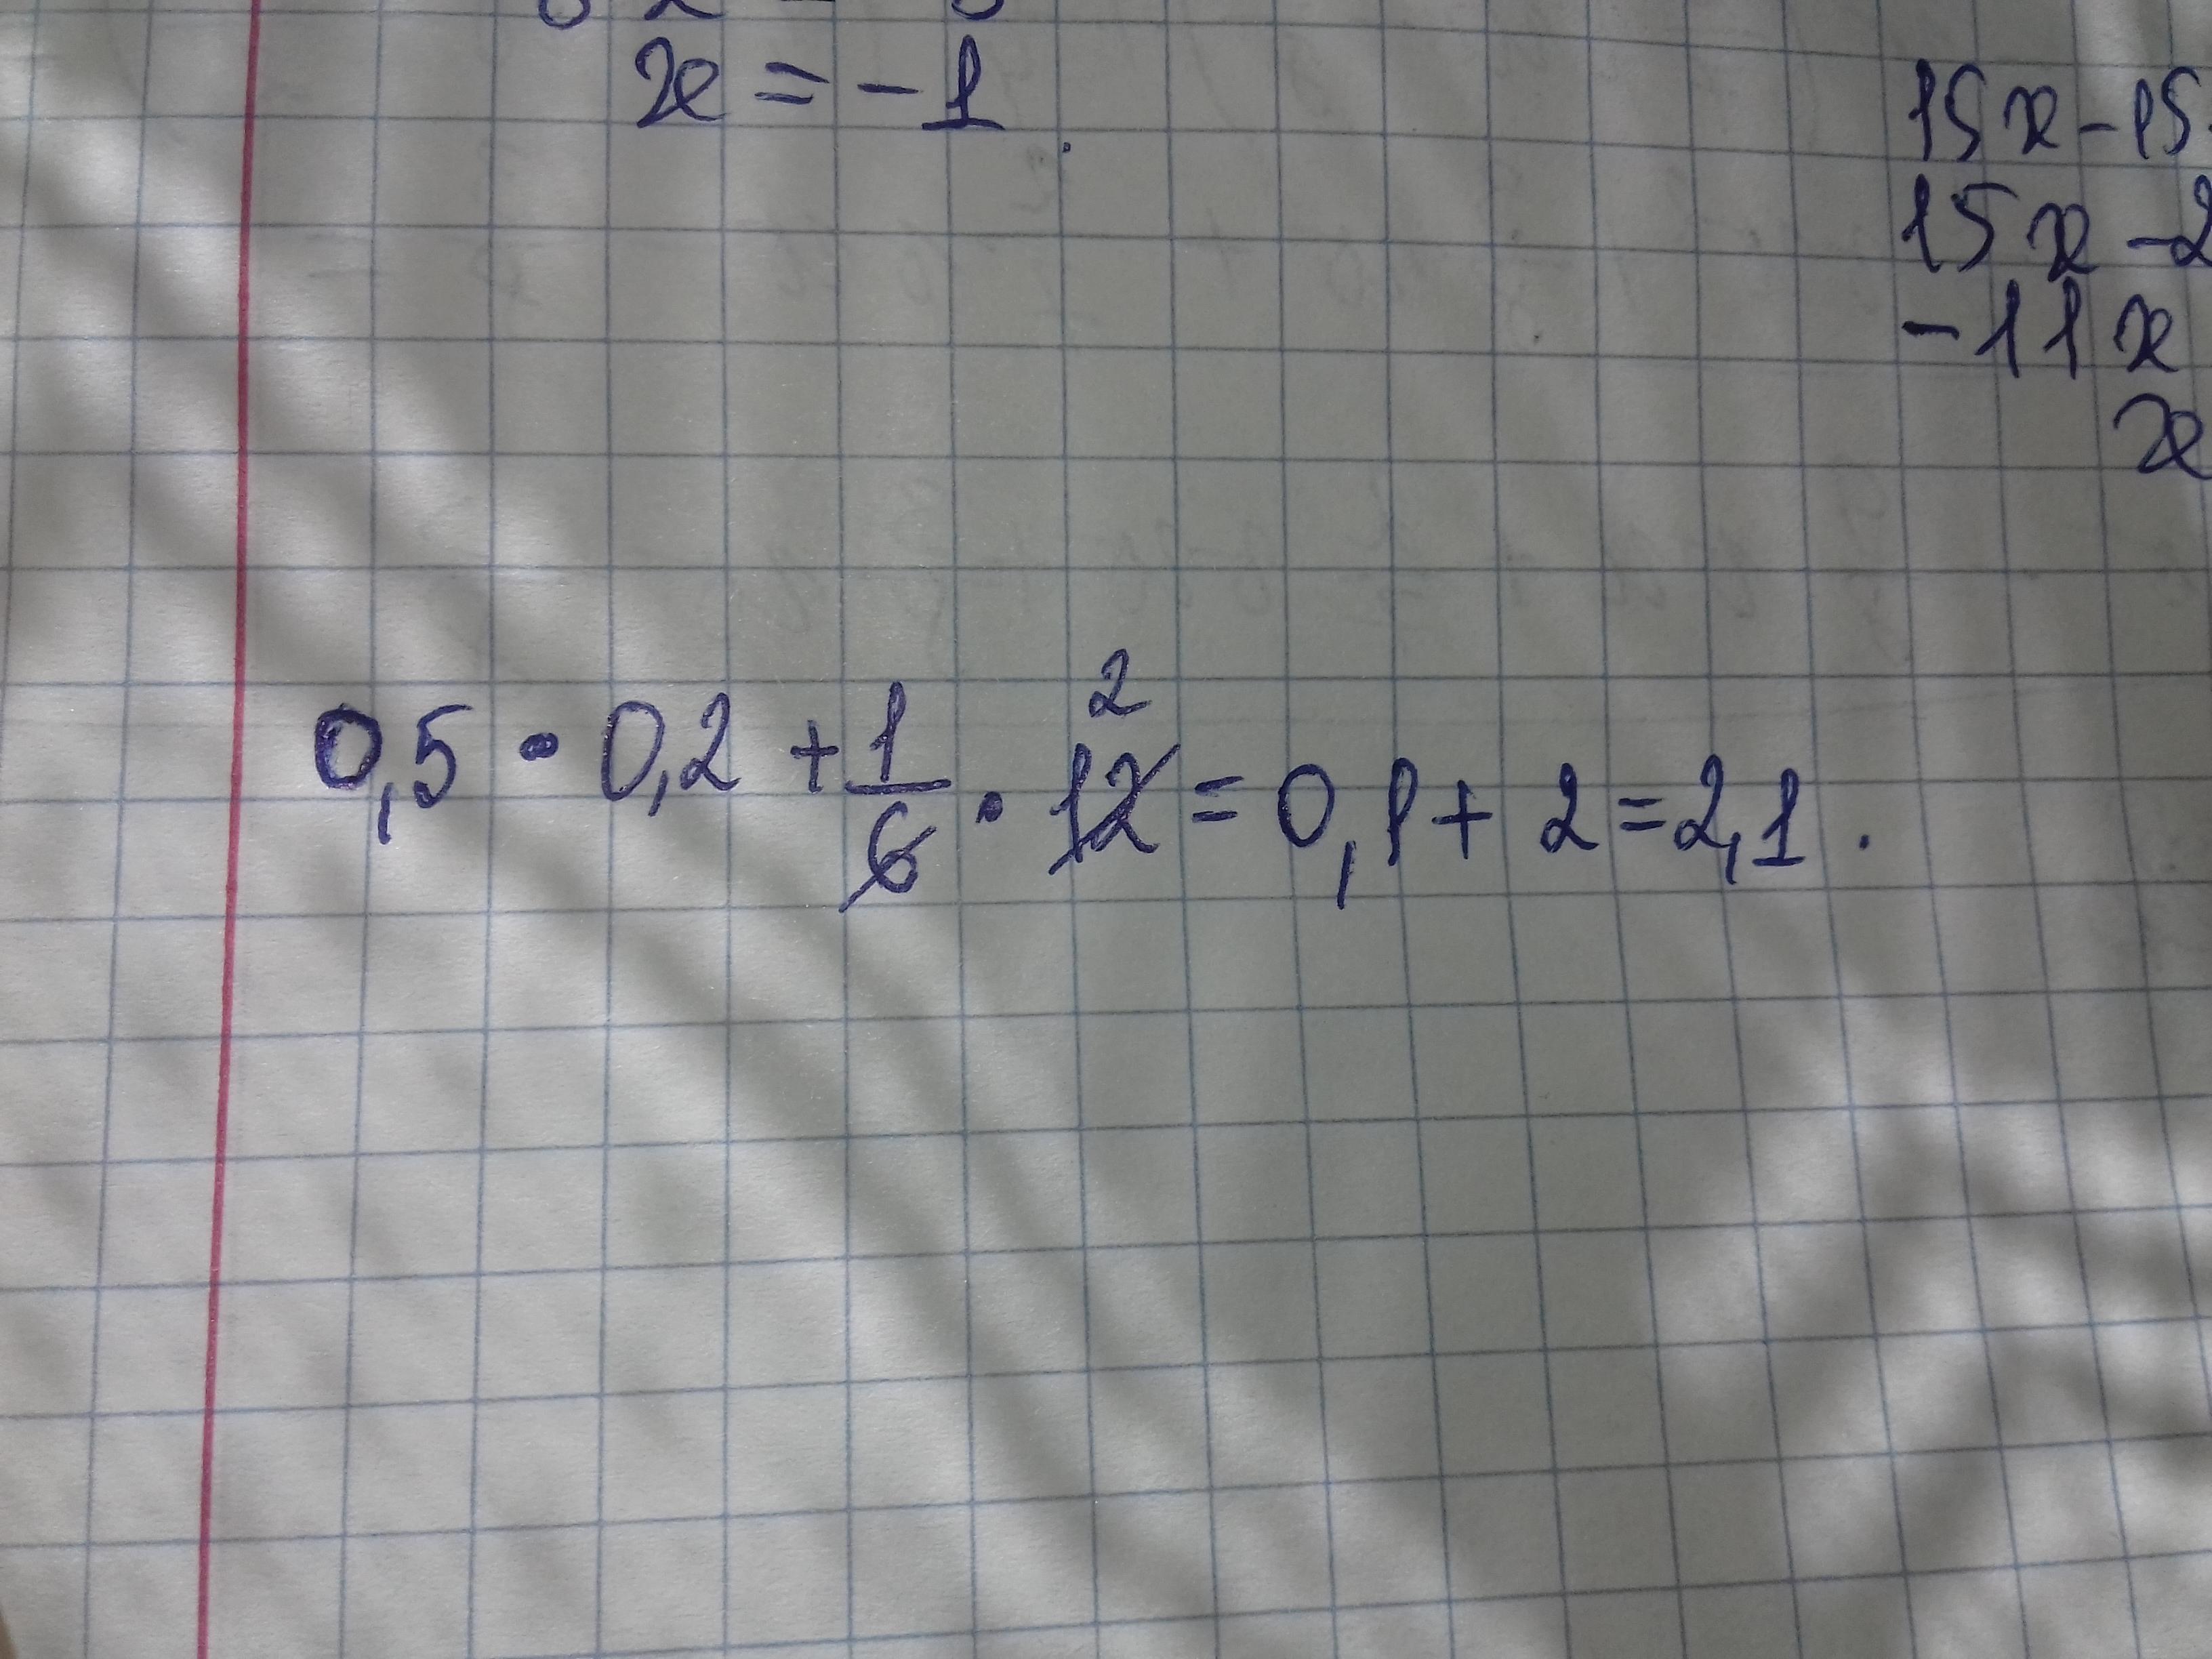 x = - 1.
15x - 15
15x - 2
- 11x
x
0,5 · 0,2 + 1/6 · 12 = 0,1 + 2 = 2,1.
2